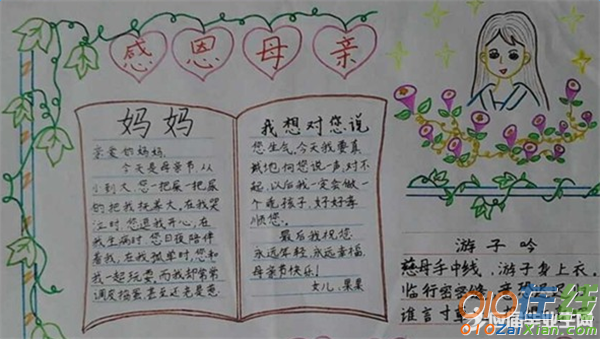 感恩母亲
妈妈
亲爱的妈妈,
今天是母亲节,从
小到大,您一把屎一把尿
的把我抚养大,在我哭
泣时,您逗我开心,在
我生病时,您日夜陪伴
着我,在我孤单时,您和
我一起玩耍,而我却常常
调皮捣蛋,甚至还老是惹
我想对您说
您生气,今天我要真
诚地向您说一声,对不
起,以后我一定会做一
个乖孩子,好好孝
顺您。
最后我祝您
永远年轻,永远幸福,
母亲节快乐!
女儿:果果
游子吟
慈母手中线,游子身上衣。
临行密密缝,意恐
谁言寸草
910在线
910zaiXian.com